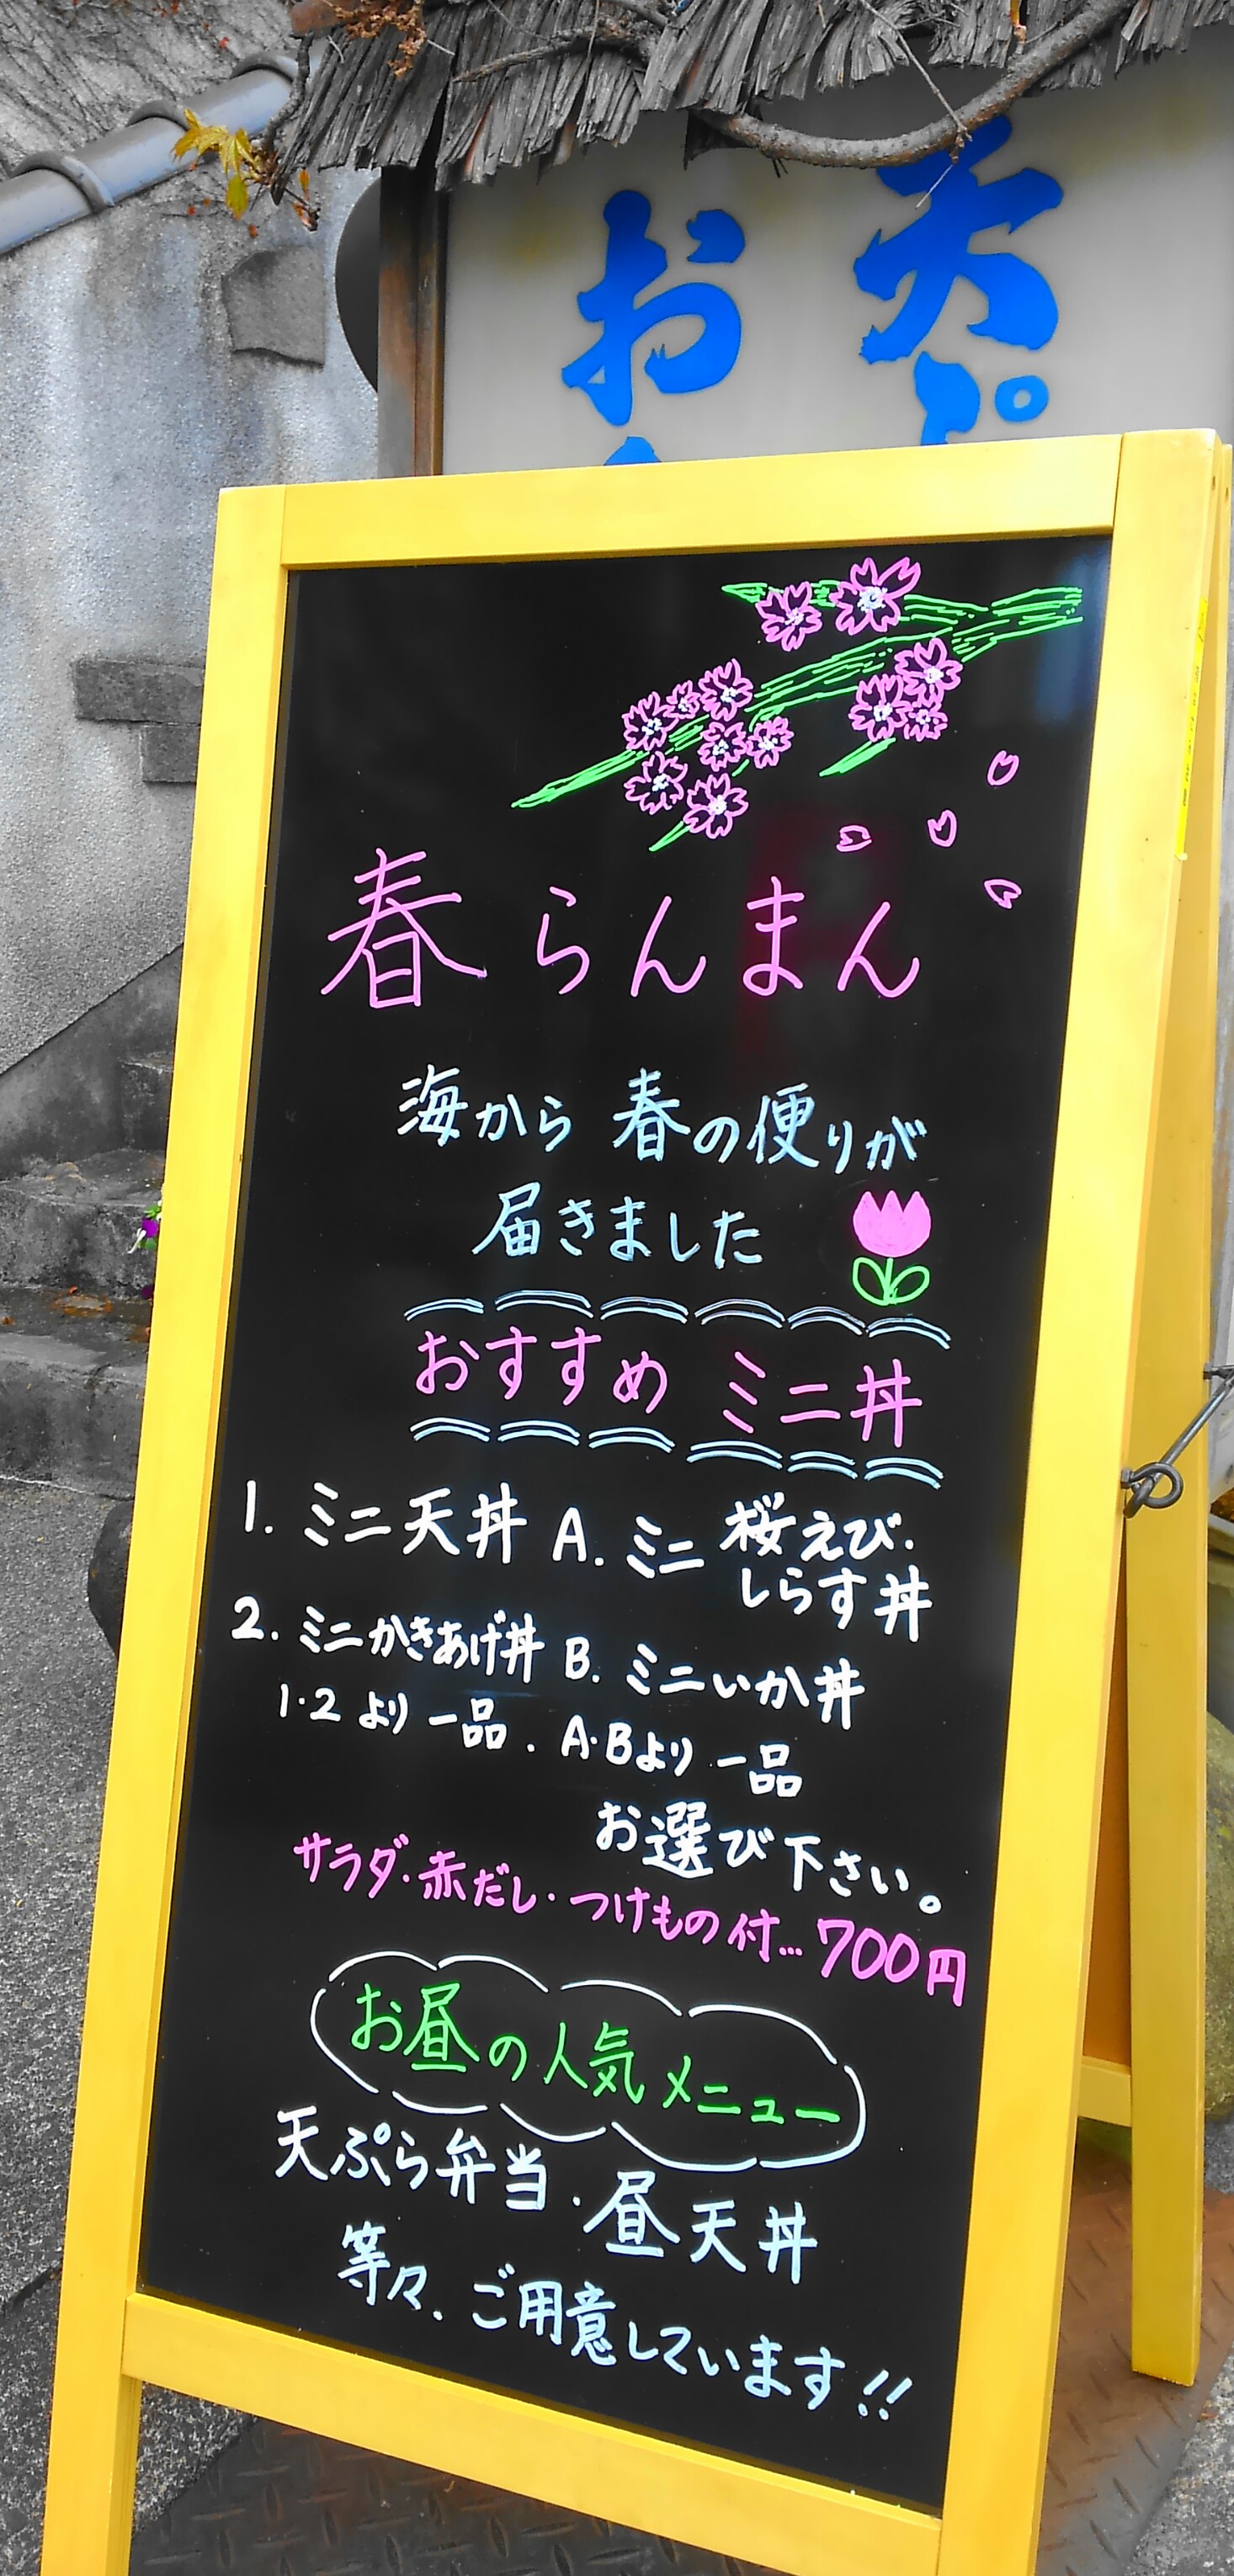 天ぷ
お
春らんまん
海から 春の便りが
届きました
おすすめ ミニ丼
1. ミニ天丼 A. ミニ 桜えび・
しらす丼
2. ミニかきあげ丼 B. ミニいか丼
1・2 より 一品. A・Bより 一品
お選び下さい。
サラダ・赤だし・つけもの付…700円
お昼の人気メニュー
天ぷら弁当・昼天丼
等々、ご用意しています!!